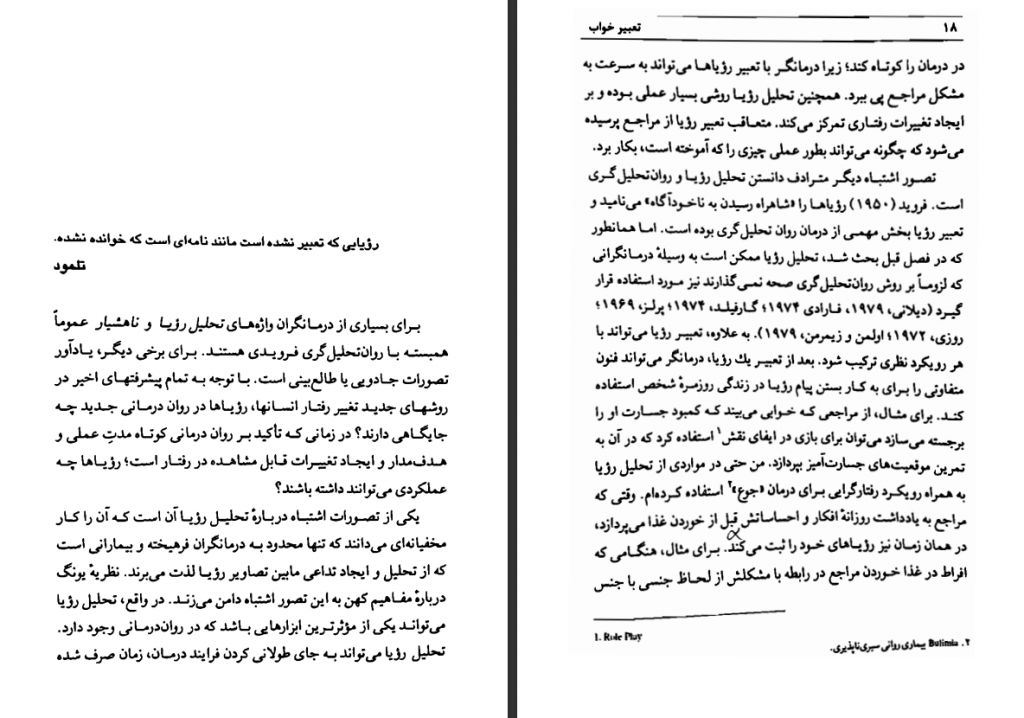 رؤیایی که تعبیر نشده است مانند نامه‌ای است که خوانده نشده.
تلمود
برای بسیاری از درمانگران واژه‌های تحلیل رؤیا و ناهشیار عموماً
همبسته با روان‌تحلیل‌گری فرویدی هستند. برای برخی دیگر، یادآور
تصورات جادویی یا طالع‌بینی است. با توجه به تمام پیشرفتهای اخیر در
روشهای جدید تغییر رفتار انسانها، رؤیاها در روان درمانی جدید چه
جایگاهی دارند؟ در زمانی که تأکید بر روان درمانی کوتاه مدتِ عملی و
هدف‌مدار و ایجاد تغییرات قابل مشاهده در رفتار است؛ رؤیاها چه
عملکردی می‌توانند داشته باشند؟
یکی از تصورات اشتباه دربارهٔ تحلیل رؤیا آن است که آن را کار
مخفیانه‌ای می‌دانند که تنها محدود به درمانگران فرهیخته و بیمارانی است
که از تحلیل و ایجاد تداعی مابین تصاویر رؤیا لذت می‌برند. نظریهٔ یونگ
دربارهٔ مفاهیم کهن به این تصور اشتباه دامن می‌زند. در واقع، تحلیل رؤیا
می‌تواند یکی از مؤثرترین ابزارهایی باشد که در روان‌درمانی وجود دارد.
تحلیل رؤیا می‌تواند به جای طولانی کردن فرایند درمان، زمان صرف شده
۱۸ تعبیر خواب
در درمان را کوتاه کند؛ زیرا درمانگر با تعبیر رؤیاها می‌تواند به سرعت به
مشکل مراجع پی ببرد. همچنین تحلیل رؤیا روشی بسیار عملی بوده و بر
ایجاد تغییرات رفتاری تمرکز می‌کند. متعاقب تعبیر رؤیا از مراجع پرسیده
می‌شود که چگونه می‌تواند بطور عملی چیزی را که آموخته است، بکار برد.
تصور اشتباه دیگر مترادف دانستن تحلیل رؤیا و روان‌تحلیل‌گری
است. فروید (۱۹۵۰) رؤیاها را «شاهراه رسیدن به ناخودآگاه» می‌نامید و
تعبیر رؤیا بخش مهمی از درمان روان تحلیل‌گری بوده است. اما همانطور
که در فصل قبل بحث شد، تحلیل رؤیا ممکن است به وسیلهٔ درمانگرانی
که لزوماً بر روش روان‌تحلیل‌گری صحه نمی‌گذارند نیز مورد استفاده قرار
گیرد (دیلانی، ۱۹۷۹، فارادی ۱۹۷۴؛ گارفیلد، ۱۹۷۴؛ پرلز، ۱۹۶۹؛
روزی، ۱۹۷۲؛ اولمن و زیمرمن، ۱۹۷۹). به علاوه، تعبیر رؤیا می‌تواند با
هر رویکرد نظری ترکیب شود. بعد از تعبیر یك رؤیا، درمانگر می‌تواند فنون
متفاوتی را برای به کار بستن پیام رؤیا در زندگی روزمرهٔ شخص استفاده
کند. برای مثال، از مراجعی که خوابی می‌بیند که کمبود جسارت او را
برجسته می‌سازد می‌توان برای بازی در ایفای نقش۱ استفاده کرد که در آن به
تمرین موقعیت‌های جسارت‌آمیز بپردازد. من حتی در مواردی از تحلیل رؤیا
به همراه رویکرد رفتارگرایی برای درمان «جوع»۲ استفاده کرده‌ام. وقتی که
مراجع به یادداشت روزانهٔ افکار و احساساتش قبل از خوردن غذا می‌پردازد،
در همان زمان نیز رؤیاهای خود را ثبت می‌کند. برای مثال، هنگامی که
افراط در غذا خوردن مراجع در رابطه با مشکلش از لحاظ جنسی با جنس
1. Role Play
۲. Bulimia بیماری روانی سیری‌ناپذیری.